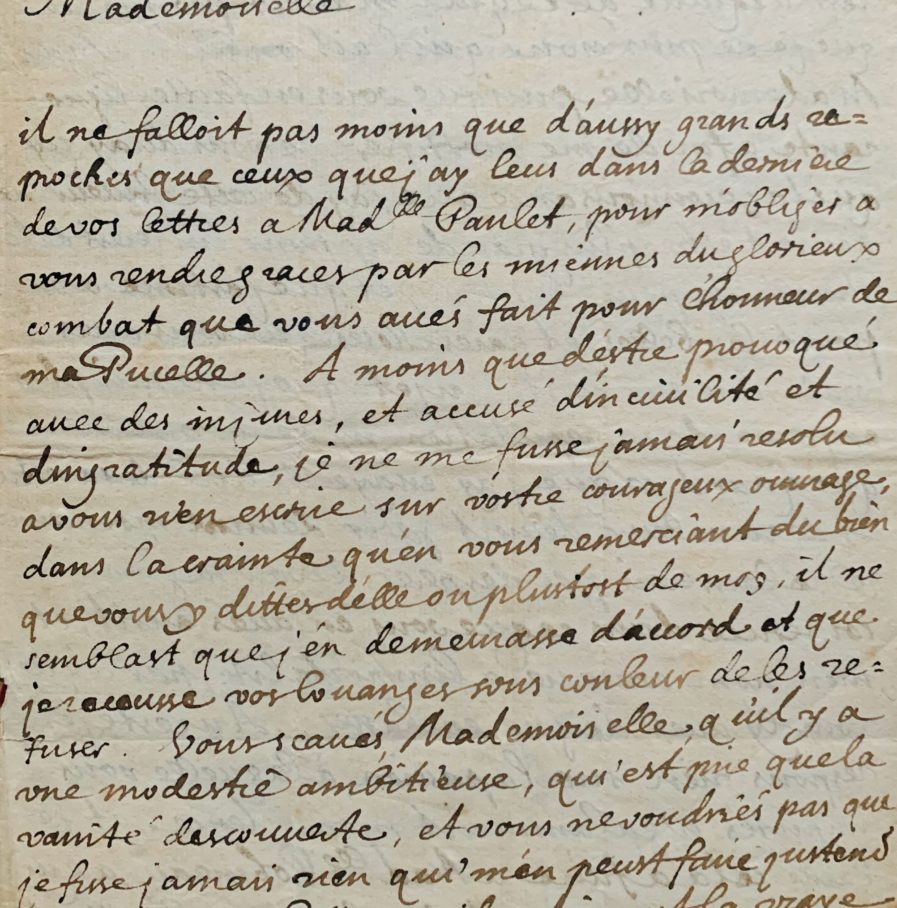 Mademoiselle
il ne falloit pas moins que d'aussy grands re=
proches que ceux que j'ay leus dans la derniere
de vos lettres a Mad^lle Paulet, pour m'obliger a
vous rendre graces par les miennes du glorieux
combat que vous avés fait pour l'honneur de
ma Pucelle. A moins que d'estre prouoqué
auec des injures, et accusé d'inciuilité et
d'ingratitude, je ne me fusse jamais resolu
a vous rien escrire sur vostre courageux ouurage,
dans la crainte qu'en vous remerciant du bien
que vous y dittes d'elle ou plustost de moy, il ne
semblast que j'en demeurasse d'accord et que
je receusse vos louanges sous couleur de les re=
fuser. Vous scaués, Mademoiselle, qu'il y a
vne modestie ambitieuse, qui est pire que la
vanité descouuerte, et vous ne voudriés pas que
je fisse jamais rien qui m'en peust faire justem^t
la vraye